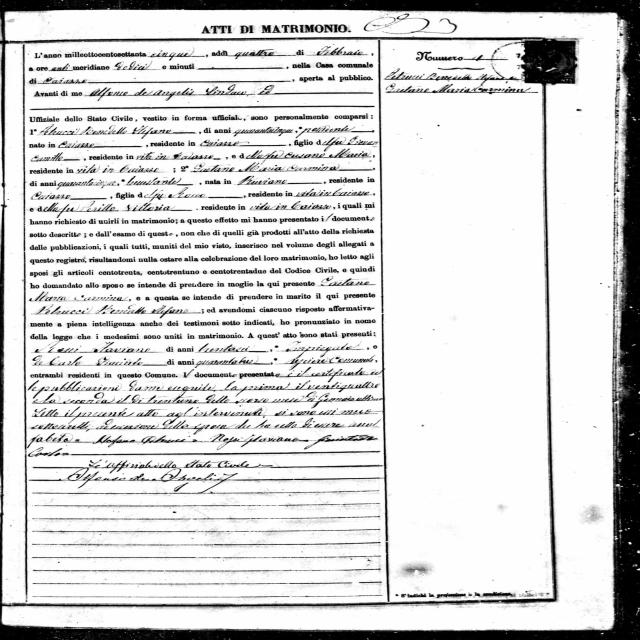 ATTI DI MATRIMONIO.
L'anno milleottocentosettanta cinque, addì quattro di Febbraio,
a ore anti meridiane Dodici e minuti, nella Casa comunale
di Caiazzo, aperta al pubblico.
Avanti di me Alfonso de Angelis Sindaco ed
Uffiziale dello Stato Civile, vestito in forma uffiziale, sono personalmente comparsi:
1° Petrucci Benedetto Stefano, di anni quarantacinque possidente
nato in Caiazzo, residente in Caiazzo, figlio di
Camillo, residente in vita in Caiazzo, e di Maria,
residente in vita in Caiazzo; 2° Gaetano Maria Carmina,
di anni, nata in Ruviano, residente in
Caiazzo, figlia di, residente in vita in Caiazzo,
e di Vittoria, residente in vita in Caiazzo, i quali mi
hanno richiesto di unirli in matrimonio; a questo effetto mi hanno presentato i documenti
sotto descritti; e dall'esame di questi, non che di quelli già prodotti all'atto della richiesta
delle pubblicazioni, i quali tutti, muniti del mio visto, inserisco nel volume degli allegati a
questo registro, risultandomi nulla ostare alla celebrazione del loro matrimonio, ho letto agli
sposi gli articoli centotrenta, centotrentuno e centotrentadue del Codice Civile, e quindi
ho domandato allo sposo se intende di prendere in moglie la qui presente Gaetano
Maria Carmina, e a questa se intende di prendere in marito il qui presente
Petrucci Benedetto Stefano; ed avendomi ciascuno risposto affermativamente
e a piena intelligenza anche dei testimoni sotto indicati, ho pronunziato in nome
della legge che i medesimi sono uniti in matrimonio. A quest'atto sono stati presenti:
Flaviano di anni, Impiegato, e
de Carlo di anni, Comunale,
entrambi residenti in questo Comune. I documenti presentati è il certificato
le pubblicazioni da me eseguite, la prima il ventiquattro
e la seconda il dì trentuno dello scorso mese di Gennaio
Letto il presente atto agl'intervenuti, si sono con me
sottoscritti, ad eccezione della sposa che ha detto di essere anal
fabeta Stefano Petrucci Flaviano
L'Uffiziale dello Stato Civile
Alfonso de Angelis
Numero 1
Petrucci Benedetto Stefano
Gaetano Maria Carmina
* S'indichi la professione o la condizione.